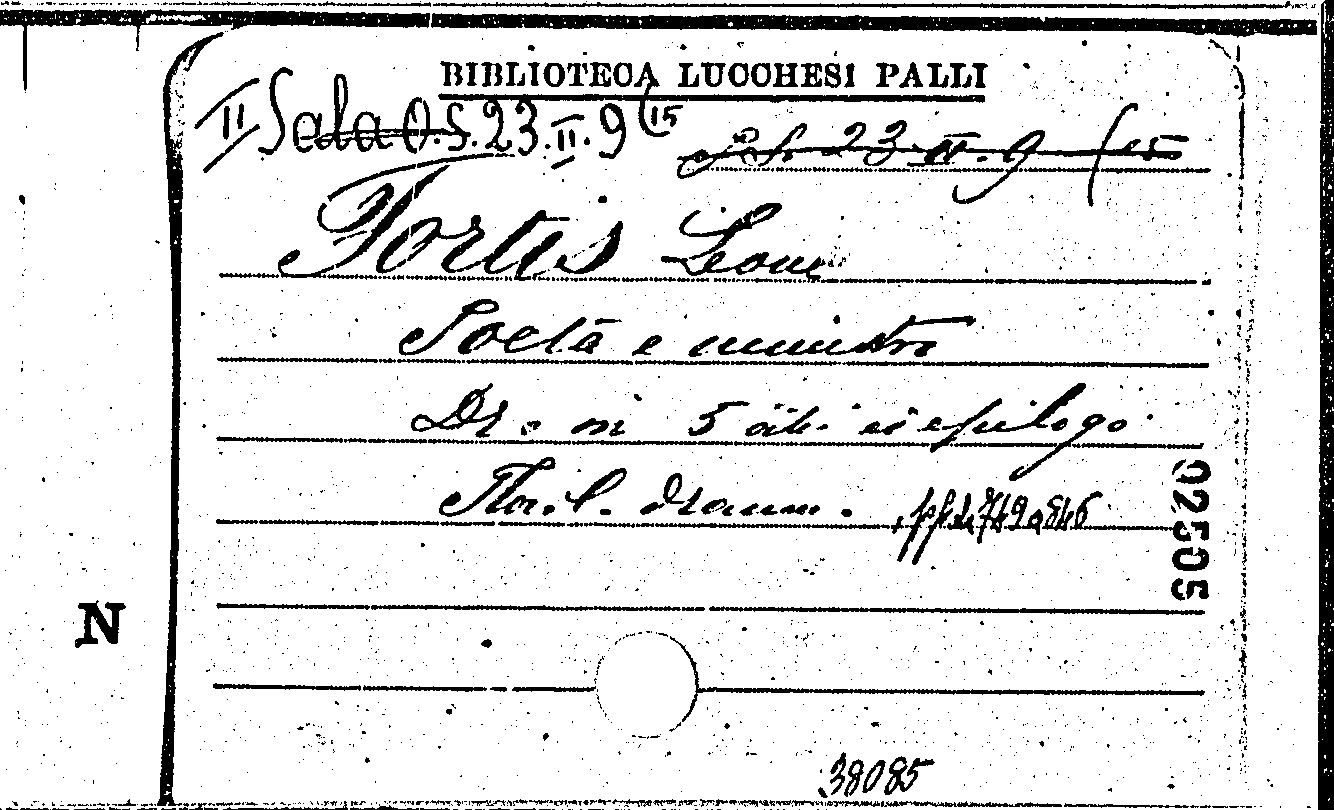 BIBLIOTECA LUCCHESI PALLI
II Sala O.S. 23.II.9(15
23.II.9(15
Fortis Leone
Poeta e ministro
Dr. in 5 atti e epilogo
Flor. dramm. pp. da 749 a 846
02505
N
38085